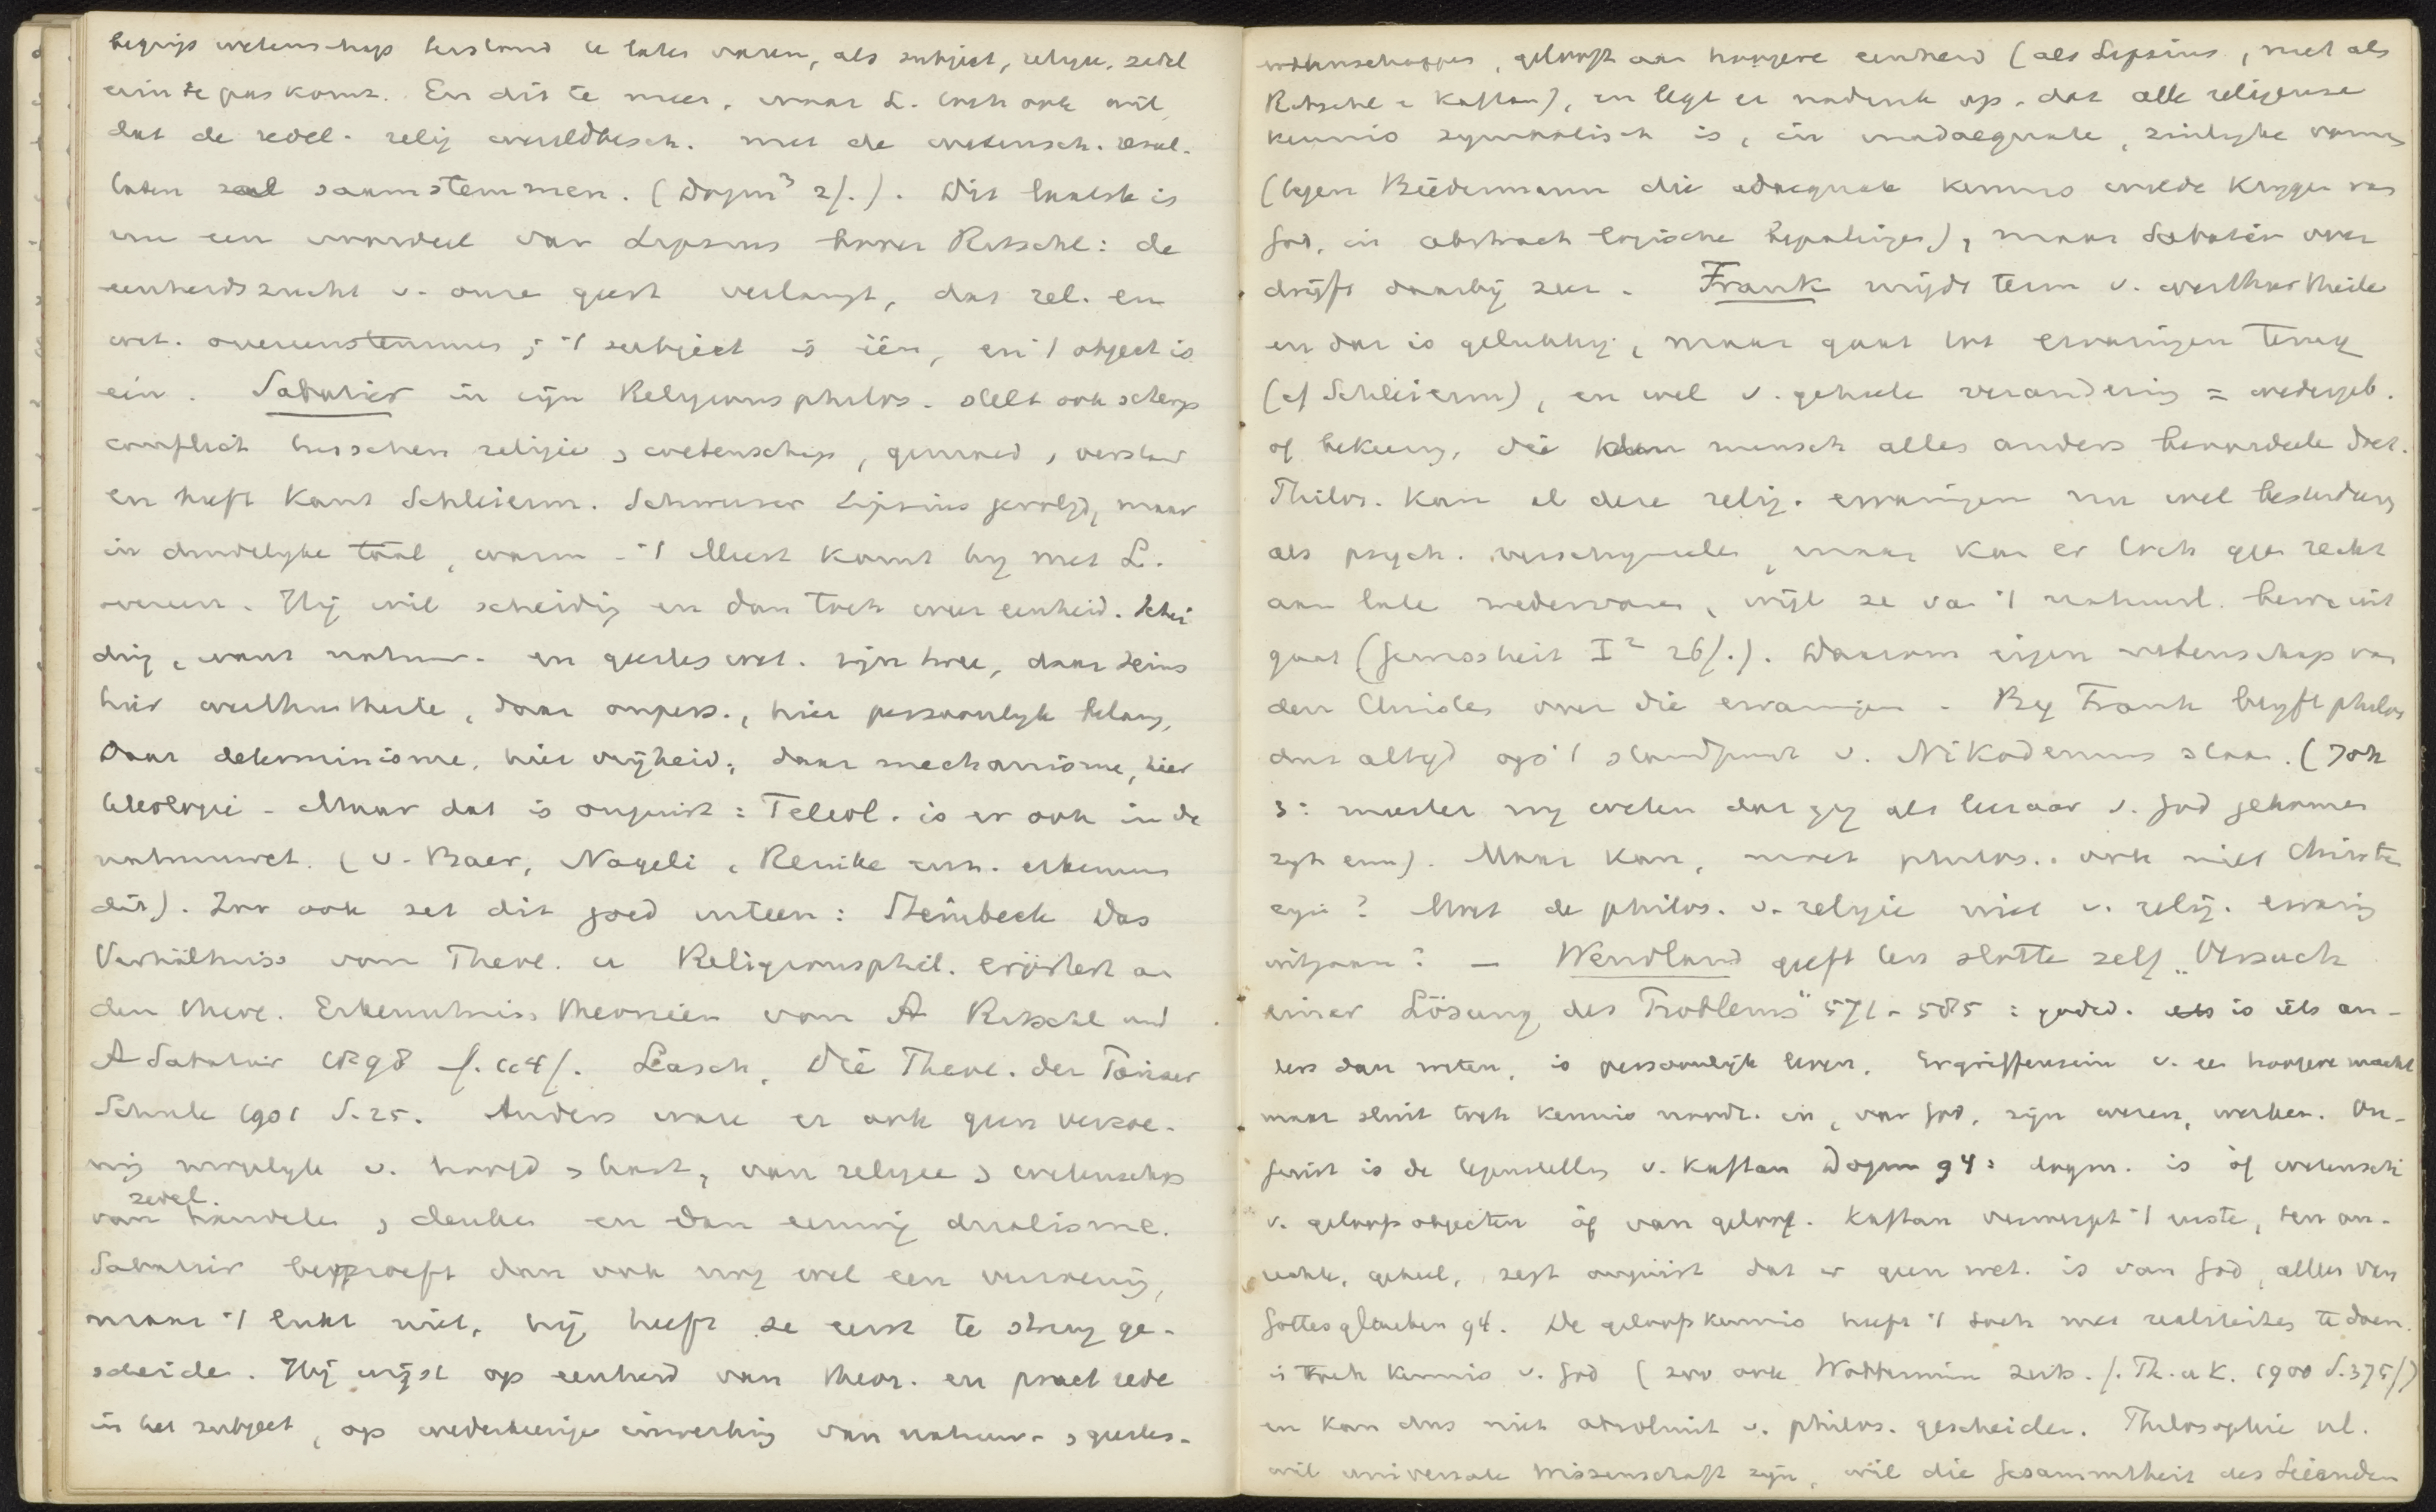 begrip wetenschap bestand te laten varen, als subject, religie, zedel
erin te pas komt. En dit te meer, waar L. toch ook wil,
dat de zedel. relig wereldbesch. met de wetensch. resul-
taten zal saamstemmen. (Dogm³ 2f.). Dit laatste is
nu een voordeel van Lipsius boven Ritschl: de
eenheidszucht v. onze geest verlangt, dat rel. en
wet. overeenstemmen; 't subject is één, en 't object is
één. Sabatier in zijn Religionsphilos. stelt ook scherp
conflict tusschen religie & wetenschap, gemoed & verstand
en heeft Kant Schleierm. Lipsius gevolgd, maar
in duidelyke taal, warm - 't Meest komt hy met L.
overeen. Hij wil scheidig en dan toch weer eenheid. Schei
dig, want natuur- en geesteswet. zijn twee, daar Seins
hier werthurtheile, daar onpers., hier persoonlyk belang,
Daar determinisme, hier vrijheid; daar mechanisme, hier
teleologie - Maar dat is onjuist: Teleol. is er ook in de
natuurwet. (v. Baer, Nageli, Reinke enz. erkennen
dit). Zoo ook zet dit goed uiteen: Steinbeck Das
Verhältniss von Theol. u Religionsphil. erörtert an
den theol. Erkenntniss theorieen von A Ritschl und
A Sabatier 1898 S. 164f. Lasch, Die Theol. der Pariser
Schule 1901 S. 25. Anders ware er ook geen verzoe-
nig mogelyk v. hoofd & hart, van religie & wetenschap
van zedel. handelen & denken en dan eeuwig dualisme.
Sabatier beproeft dan ook nog wel een verzoenig,
maar 't lukt niet, hij heeft ze eerst te streng ge-
scheiden. Hij wijst op eenheid van theor. en pract rede
in het subject, op wederkeerige inwerking van natuur- & geestes-
wetenschappen, gelooft aan hoogere eenheid (als Lipsius, niet als
Ritschl & Kaftan), en legt er nadruk op, dat alle religieuse
kennis symbolisch is, in inadaequate, zinlyke vorm
(tegen Biedermann die adaequate kennis wilde krygen van
God, in abstract logische bepalingen), maar Sabatier over
drijft daarbij zeer. Frank mijdt term v. werthurtheile
en dat is gelukkig, maar gaat tot ervaringen terug
(cf Schleierm), en wel v. geheele verandering = wedergeb.
of bekeering, die den mensch alles anders beoordeelen doet.
Philos. kan al deze relig. ervaringen nu wel bestudeeren
als psych. verschynselen, maar kan er toch geen recht
aan laten wedervaren, wijl ze van 't natuurl. bewz. uit
gaat (Gewissheit I² 26f.). Daarom eigen wetenschap van
den Christen over die ervaringen - By Frank blyft philos
dus altyd op 't standpunt v. Nikodemus staan. (Joh
3: meester wy weten dat gy als leeraar v. God gekomen
zyt enz). Maar kan, moet philos. ook niet Christe
zijn? Moet de philos. v. religie niet v. relig. ervaring
uitgaan? — Wendland geeft ten slotte zelf „Versuch
einer Lösung des Problems" 571-585: godsd. is iets an-
ders dan weten, is persoonlijk leven, Ergriffensein v. een hoogere macht
maar sluit toch kennis noodz. in, van God, zijn wezen, werken. On-
juist is de tegenstelling v. Kaftan Dogm 94: dogm. is òf wetensch
v. geloofsobjecten òf van geloof. Kaftan verwerpt 't eerste, ten on-
rechte, geheel, zegt onjuist dat er geen wet. is van God, alleen van
Gottesglauben 94. De geloofskennis heeft 't toch met realiteiten te doen.
is toch kennis v. God (zoo ook Wobbermin Zeits. f. Th. u K. 1900 S. 375f)
en kan dus niet absoluut v. philos. gescheiden. Philosophie nl.
wil universale Wissenschaft zijn, wil die Gesammtheit des Seienden